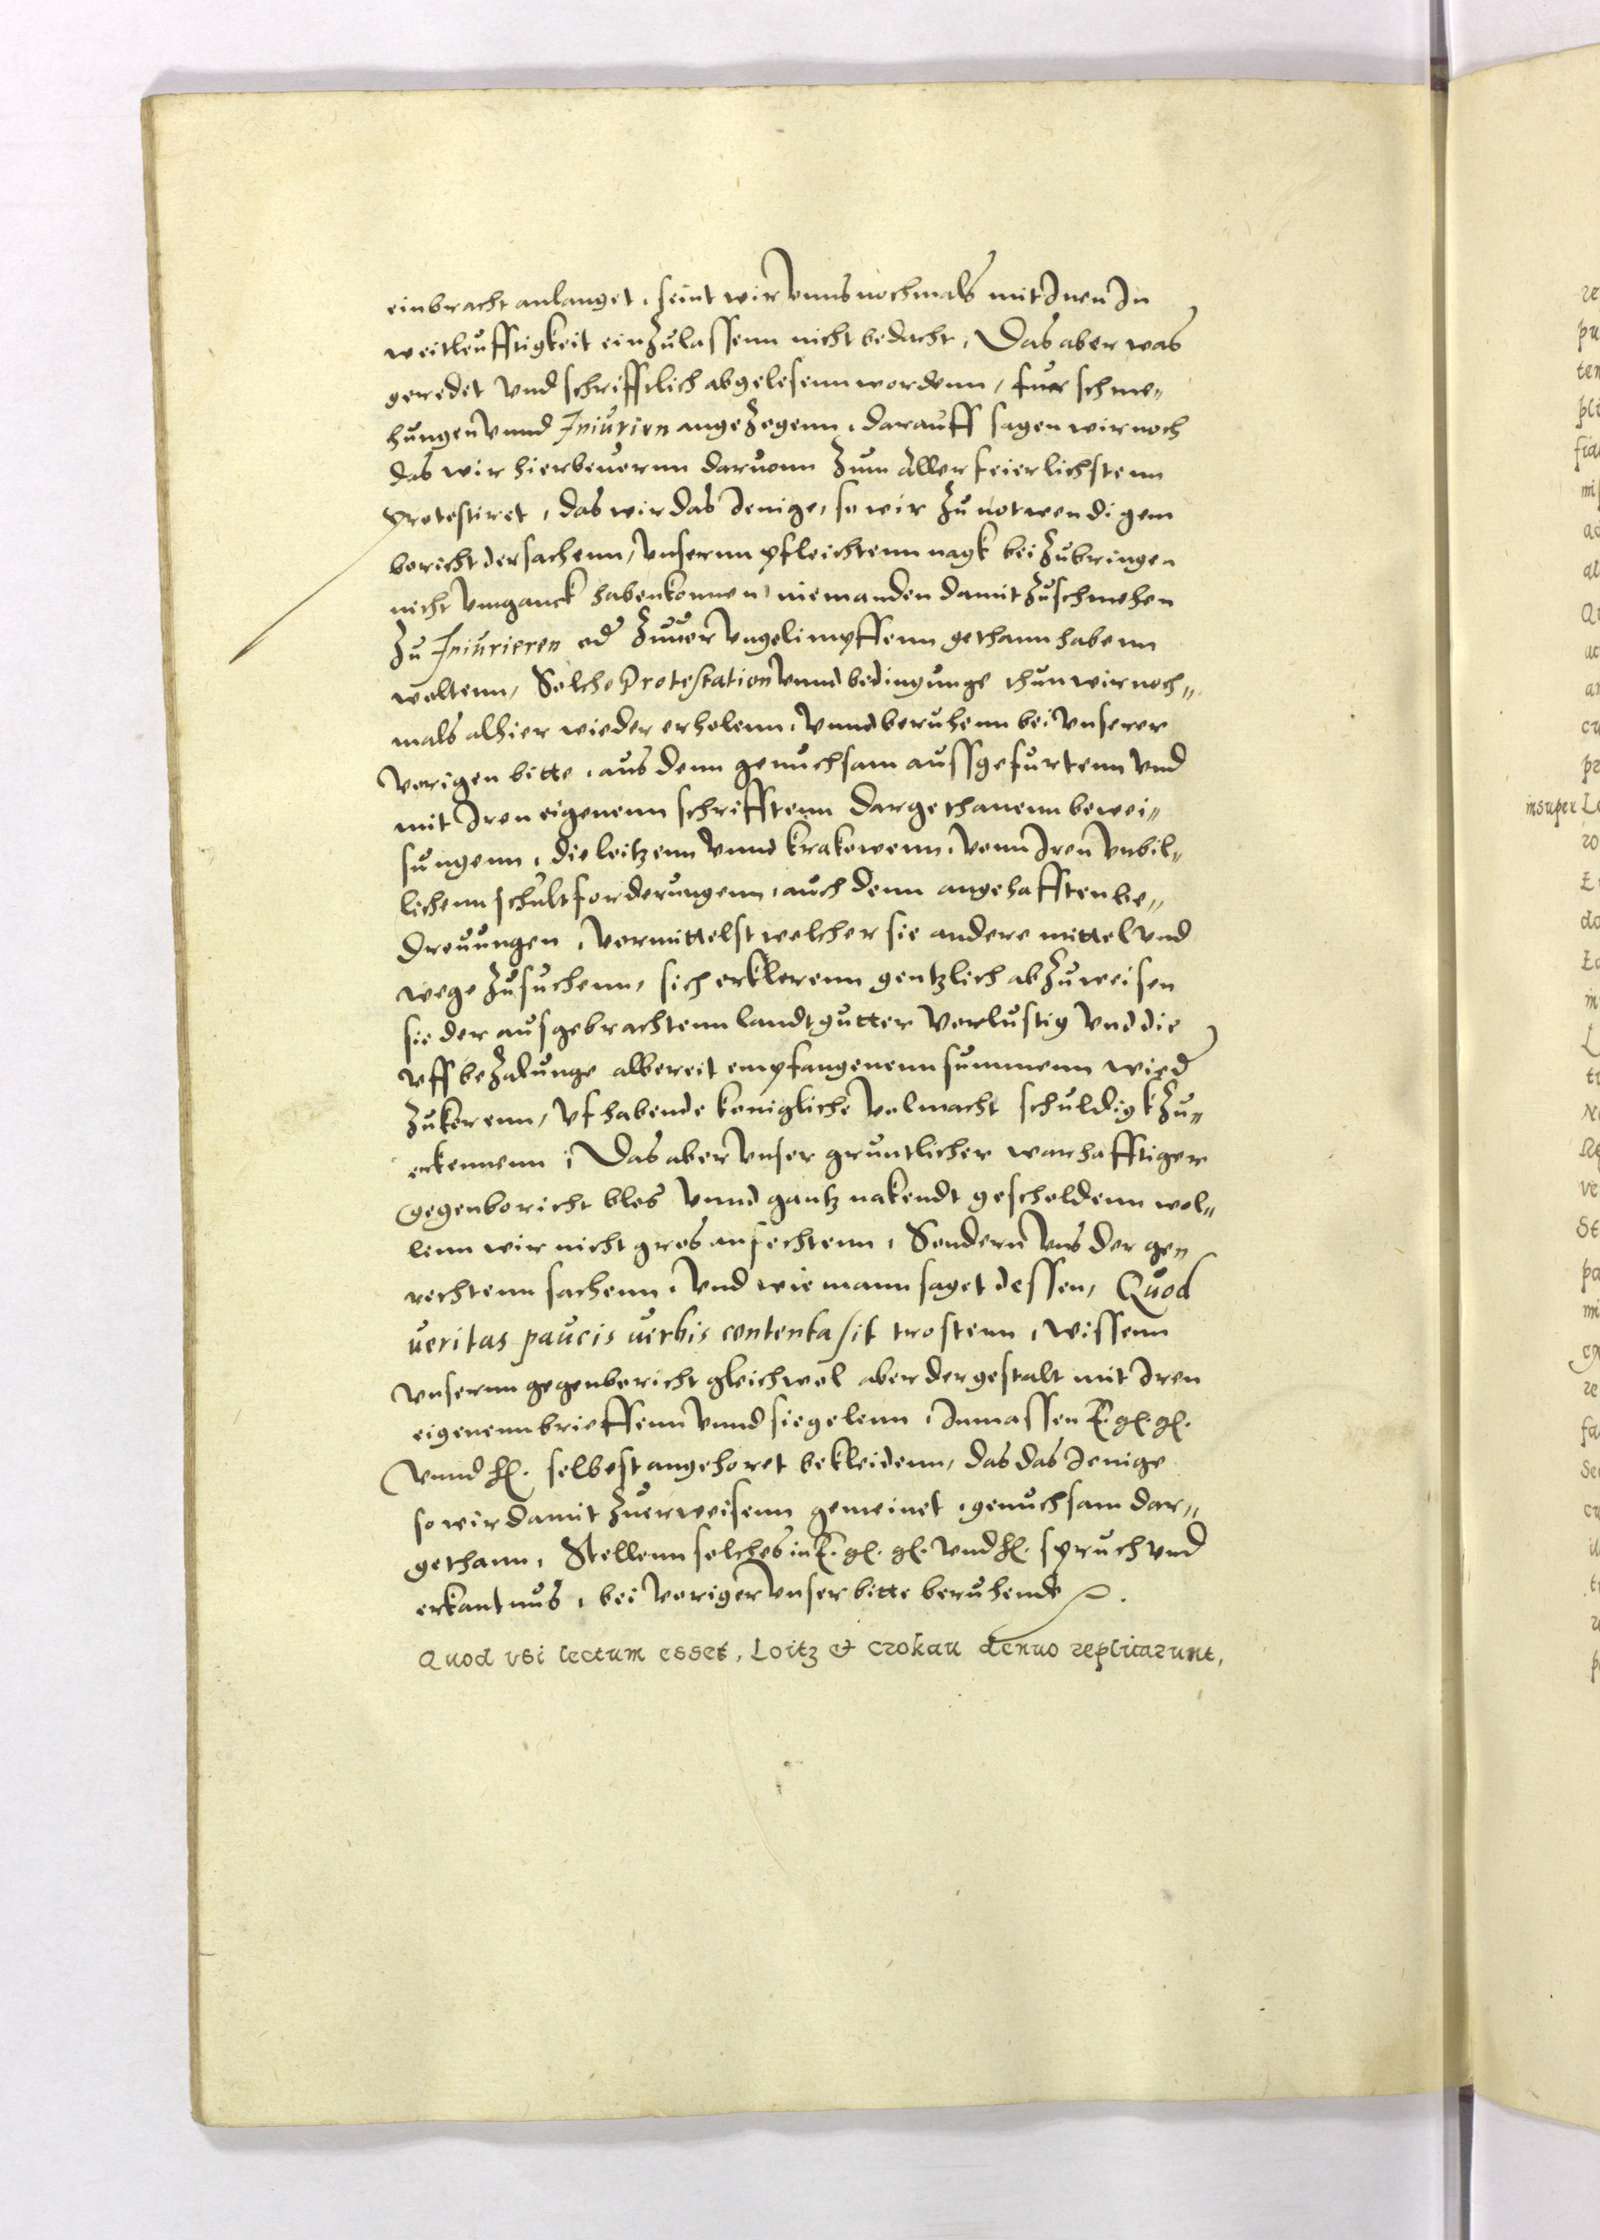 einbracht anlanget, seint wir vnns nochmals mit Inen In
weitleufftigkeit einzulassenn nicht bedacht, Das aber was
geredet vnd schrifftlich abgelesenn wordenn, fur schme„
hungen vnnd Iniurien angezogenn, darauff sagen wir noch
das wir hierbeuornn daruonn zum allerfeierlichstenn
protestiret, das wir das Jenige, so wir zu notwendigem
bericht der sachenn, vnsernn pfleichtenn nagk beizubringen
nicht vmganck haben konnen, niemanden damit zuschmehen
zu Iniurieren od zuuer vngelimpffenn gethann habenn
woltenn, Solche Protestation vnnd bedingunge thun wir noch„
mals alhier wieder erholenn, vnnd beruhenn bei vnserer
vorigen bitte, aus denn genuchsam aussgefurtenn vnd
mit Iren eigenenn schrifftenn dargethanenn bewei„
sungenn, die loitzenn vnnd krakowenn, vonn Iren vnbil„
lichenn schultforderungenn, auch denn angehafften be„
dreuungen, vermittelst welcher sie andere mittel vnd
wege zusuchenn, sich erklerenn gentzlich abzuweisen
sie der ausgebrachtenn landtgutter verlustig vnd die
vff bezalunge albereit empfangenenn summenn wied
zukerenn, vf habende konigliche volmacht schuldigk zu„
erkennenn, Das aber vnser gruntlicher warhafftiger
gegenbericht blos vnnd gantz nakendt gescholdenn wol„
lenn wir nicht gros anfechtenn, Sondern vns der ge„
rechtenn sachenn, vnd wie mann saget dessen, Quod
ueritas paucis uerbis contenta sit trostenn, wissenn
vnsernn gegenbericht gleichwol aber dergestalt mit Iren
eigenenn brieffenn vnnd siegelenn, Inmassen E. gl. gl.
vnnd hl. selbest angehoret bekleidenn, das das Jenige
so wir damit zuerweisenn gemeinet, genuchsam dar„
gethann, Stellenn solches in E. gl. gl. vnd hl. spruch vnd
erkantnus, bei voriger vnser bitte beruhende
Quod vbi lectum esset, Loitz et Crokau denuo replicarunt,
insuper